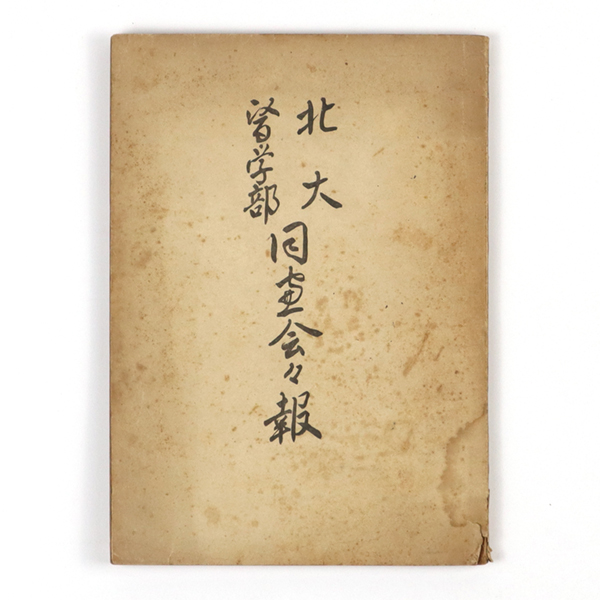 北大
醫学部
同窓会々報